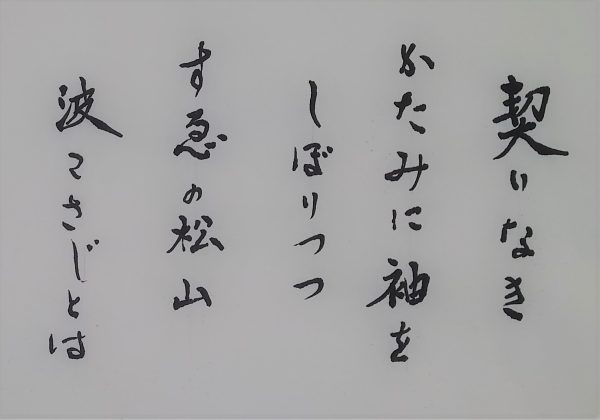 契りなき
かたみに袖を
しぼりつつ
す急の松山
波こさじとは